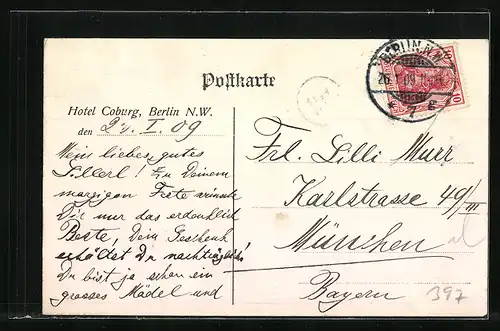 Postkarte
BERLIN N.W.
26.1.09
* 7 e
10
Hotel Coburg, Berlin N.W.
den I. 09
Mein liebes, gutes
Lillerl! Zu Deinem
morgigen Feste wünsche
Dir nur das erdenklich
Beste, Dein Geschenk
erhältst Du nachträglich!
Du bist ja schon ein
grosses Mädel und
Frl. Lilli Murr
Karlstrasse 49/III
München
Bayern
397